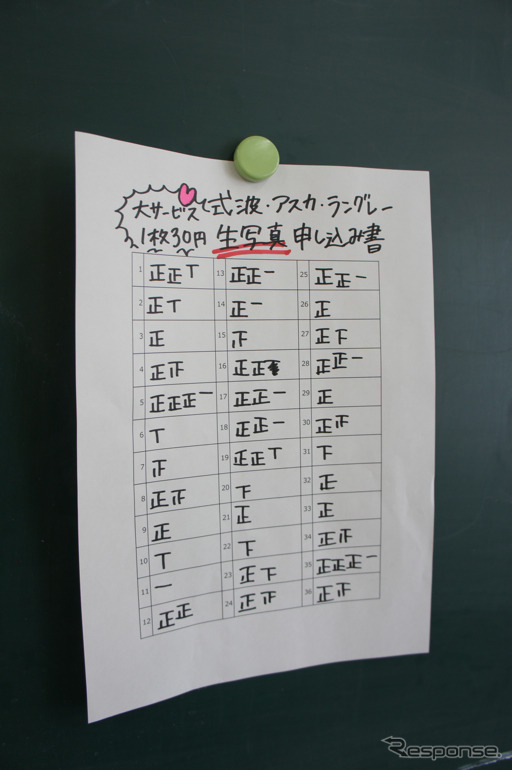 大サービス
1枚30円
式波・アスカ・ラングレー
生写真 申し込み書
1 正正T
2 正T
3 正
4 正正
5 正正正一
6 T
7 正
8 正正
9 正
10 T
11 一
12 正正
13 正正一
14 正一
15 正
16 正正
17 正正一
18 正正一
19 正正T
20 下
21 正
22 下
23 正下
24 正正
25 正正一
26 正
27 正下
28 正正一
29 正
30 正正
31 下
32 正
33 正
34 正正
35 正正正一
36 正正
Response.